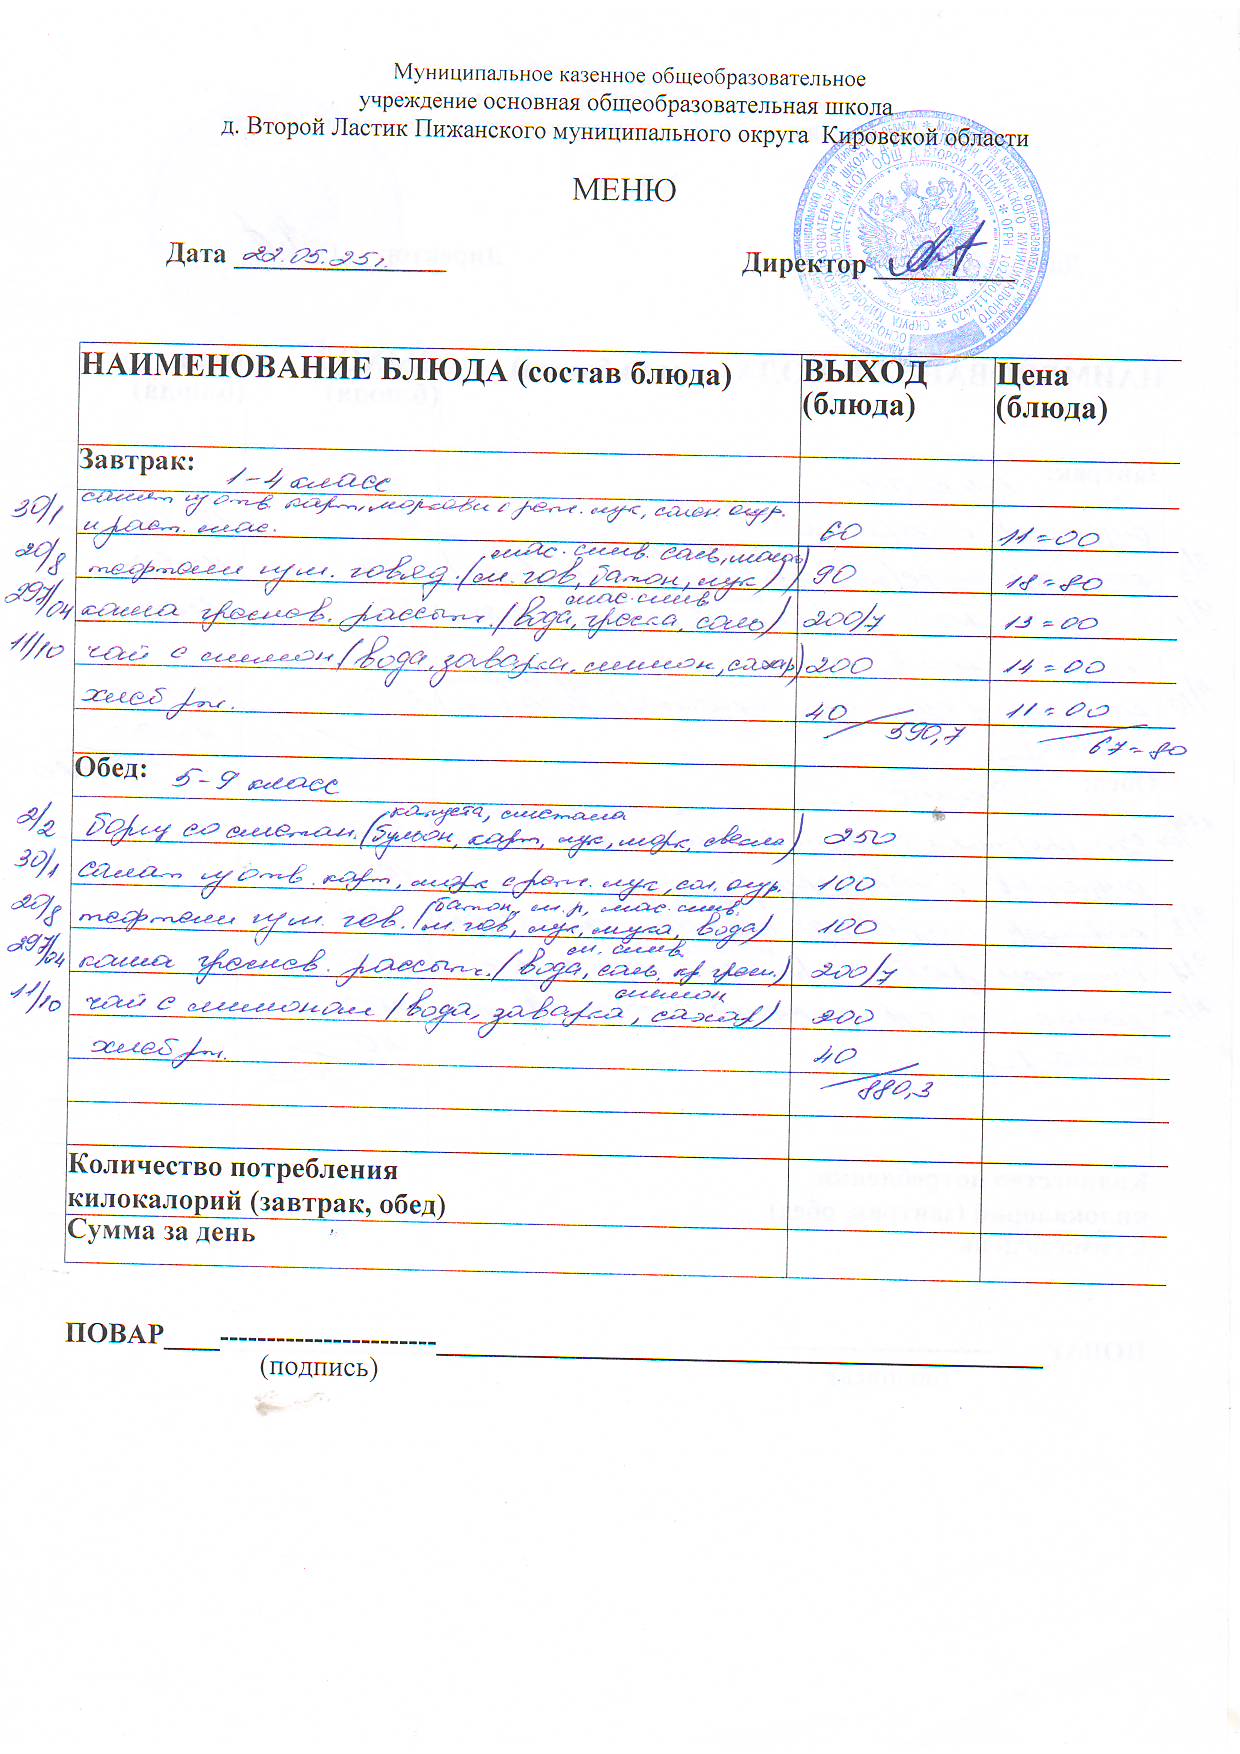 Муниципальное казенное общеобразовательное
учреждение основная общеобразовательная школа
д. Второй Ластик Пижанского муниципального округа Кировской области
МЕНЮ
Дата 22.05.25г.
Директор
НАИМЕНОВАНИЕ БЛЮДА (состав блюда) ВЫХОД (блюда) Цена (блюда)
Завтрак:
1-4 класс
30/1 салат из отв. карт, моркови с репч. лук, солен. огур.
и раст. мас. 60 11=00
мас. слив. соль, мука)
20/8 тефтели из м. говяд. (м. гов, батон, лук) 90 18=80
мас. слив.
297/04 каша гречнев. рассыпч. (вода, гречка, соль) 200/7 13=00
11/10 чай с лимон (вода, заварка, лимон, сахар) 200 14=00
хлеб рж. 40 11=00
590,7 67=80
Обед: 5-9 класс
капуста, сметана
2/2 борщ со сметан. (бульон, карт, лук, морк, свекла) 250
30/1 салат из отв. карт, морк с репч. лук, сол. огур. 100
батон, м. р, мас. слив.
20/8 тефтели из м. гов. (м. гов, лук, мука, вода) 100
м. слив.
297/04 каша гречнев. рассыпч. (вода, соль, кр греч.) 200/7
лимон
11/10 чай с лимоном (вода, заварка, сахар) 200
хлеб рж. 40
880,3
Количество потребления
килокалорий (завтрак, обед)
Сумма за день
ПОВАР____-----------------------
(подпись)